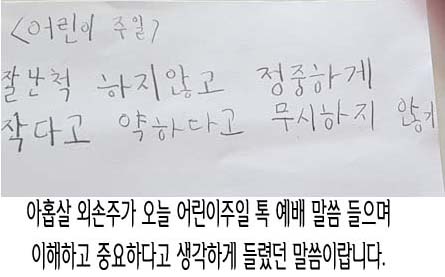 <어린이 주일>
잘난척 하지않고 정중하게
작다고 약하다고 무시하지 않기
아홉살 외손주가 오늘 어린이주일 톡 예배 말씀 들으며
이해하고 중요하다고 생각하게 들렸던 말씀이랍니다.